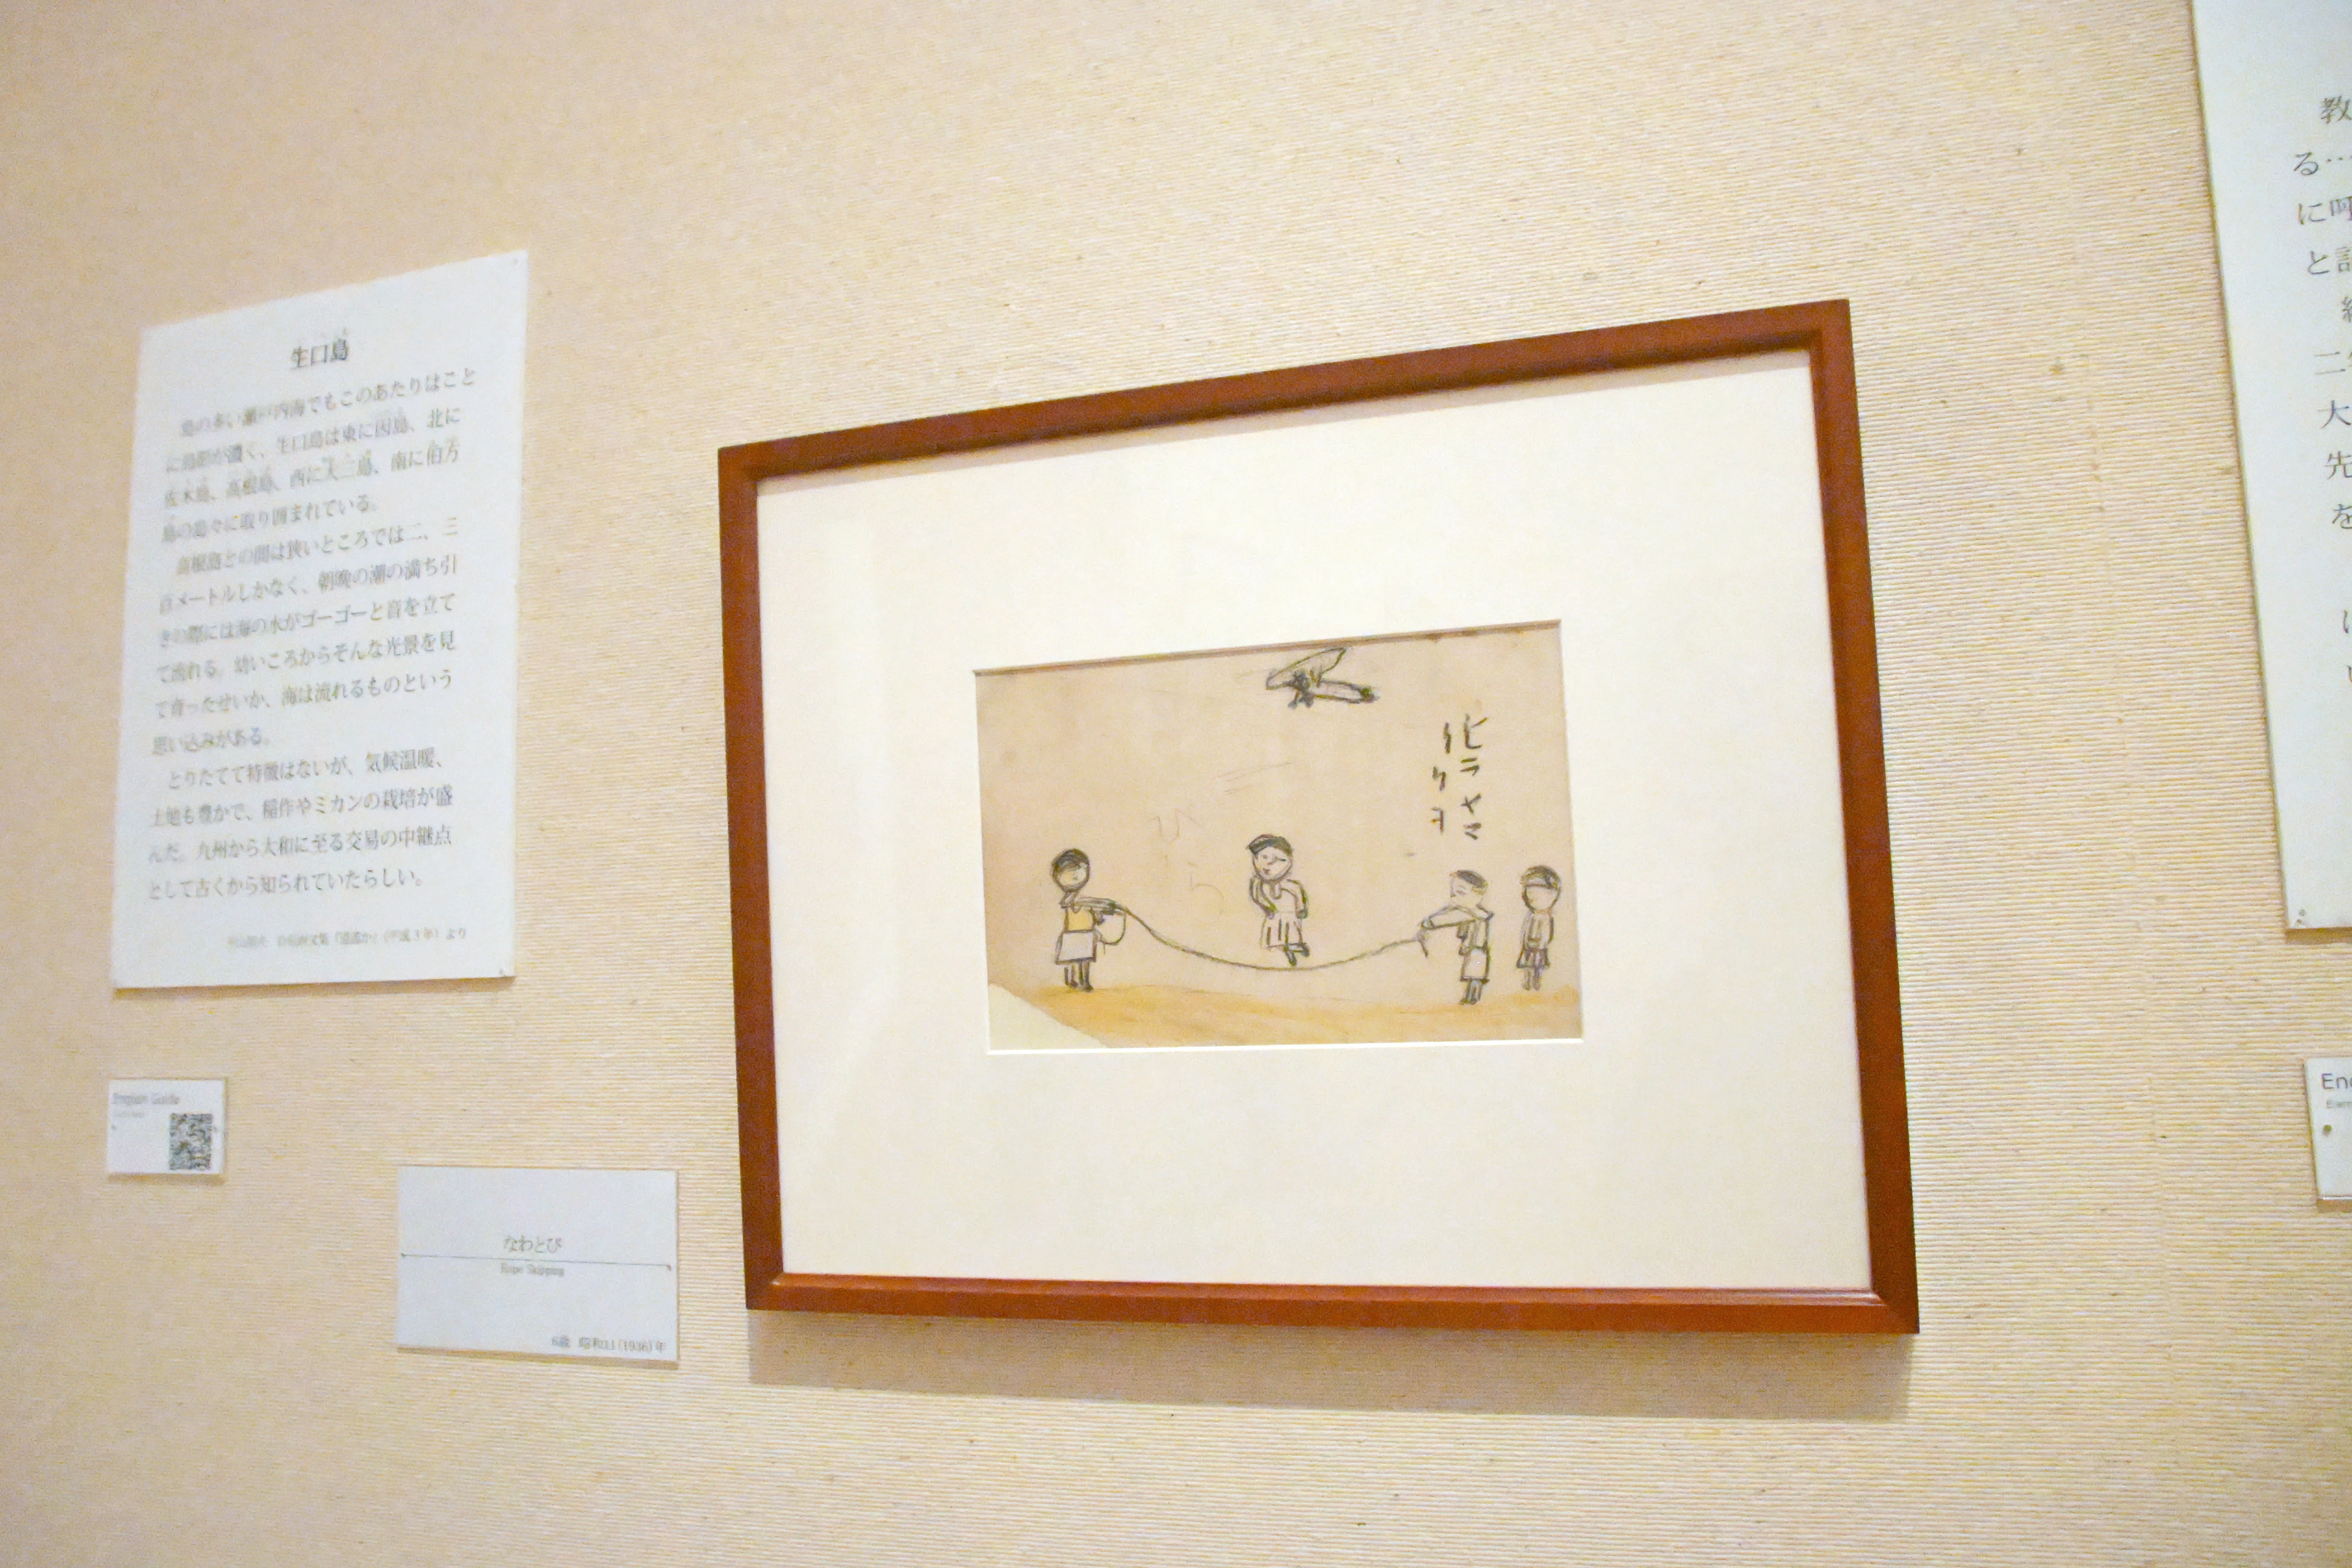 生口島
島の多い瀬戸内海でもこのあたりはこと
に島影が濃く、生口島は東に因島、北に
佐木島、高根島、西に大三島、南に伯方
島の島々に取り囲まれている。
高根島との間は狭いところでは二、三
百メートルしかなく、朝晩の潮の満ち引
きの際には海の水がゴーゴーと音を立て
て流れる。幼いころからそんな光景を見
て育ったせいか、海は流れるものという
思い込みがある。
とりたてて特徴はないが、気候温暖、
土地も豊かで、稲作やミカンの栽培が盛
んだ。九州から大和に至る交易の中継点
として古くから知られていたらしい。
(平成3年)より
English Guide
なわとび
Rope Skipping
6歳 昭和11(1936)年
ヒラヤマ
イクヲ
ひら
教
る…
に
と
二
大
先
を